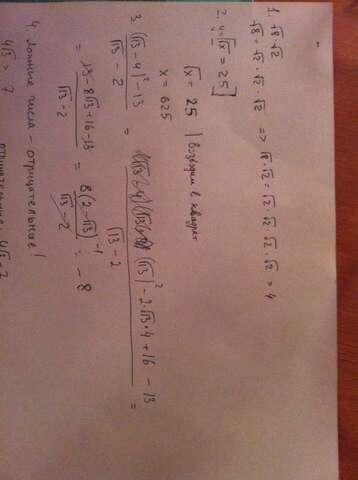 1. √8·√2
√8 = √2·√2·√2 => √8·√2 = √2·√2·√2·√2 = 4
2. √x = 25
√x = 25 | возводим в квадрат
x = 625
3. (√13 - 4)² - 13 / √13 - 2 = (√13)² - 2·√13·4 + 16 - 13 / √13 - 2 =
= 13 - 8√13 + 16 - 13 / √13 - 2 = 8(2 - √13)⁻¹ / √13 - 2 = - 8
4. числа - отрицательные!
4√3 > 7